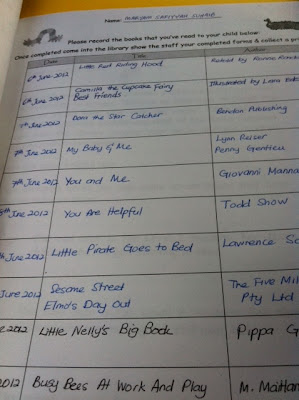 Name: MARYAM
Please record the books that you've read to your child below:
Once completed come into the library show the staff your completed forms & collect a
Date Title Author
6th June 2012 Little Red Riding Hood Retold by
6th June 2012 Camilla the Cupcake Fairy Illustrated by Lara
Best Friends
7th June 2012 the Star Catcher Bendon Publishing
7th June 2012 My Baby & Me Lynn Reiser
Penny Gentieu
7th June 2012 You and Me Giovanni
June 2012 You Are Helpful Todd Snow
June 2012 Little Pirate Goes to Bed Lawrence
June 2012 Sesame Street The Five Mile
Elmo's Day Out Pty Ltd
2012 Little Nelly's Big Book Pippa G
2012 Busy Bees At Work And Play M.